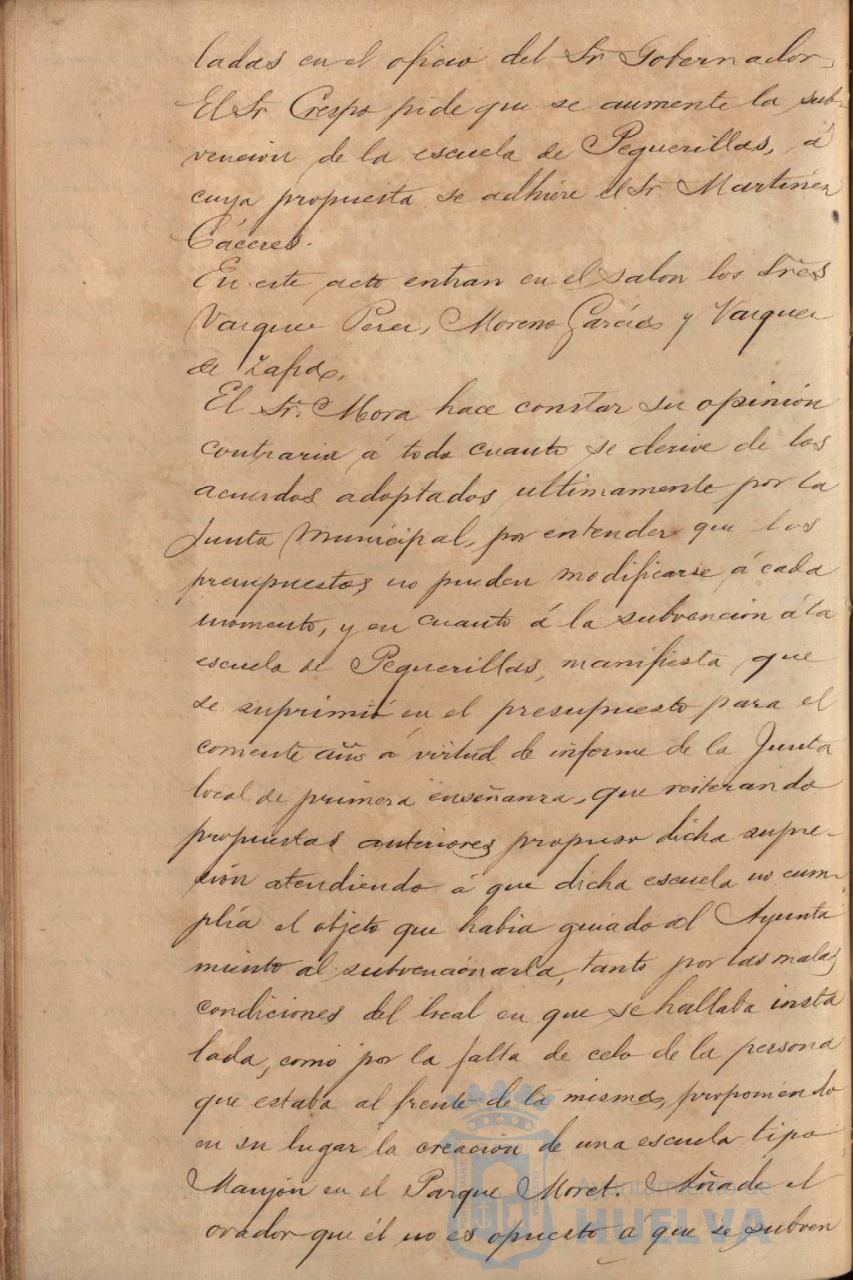 ladas en el oficio del Sr Gobernador,
El Sr Crespo pide que se aumente la sub-
vención de la escuela de Pequerillas, á
cuya propuesta se adhiere el Sr. Martinez
Cáceres.
En este acto entran en el salon los Sres
Vazquez Perez, Moreno García y Vazquez
de Zafra.
El Sr. Mora hace constar su opinión
contraria á todo cuanto se derive de los
acuerdos adoptados ultimamente por la
Junta Municipal, por entender que los
presupuestos no pueden modificarse á cada
momento, y en cuanto á la subvención á la
escuela de Pequerillas, manifiesta que
se suprimió en el presupuesto para el
corriente año á virtud de informe de la Junta
local de primera enseñanza, que reiterando
propuestas anteriores propuso dicha supre-
sión atendiendo á que dicha escuela no cum-
plía el objeto que habia guiado al Ayunta
miento al subvencionarla, tanto por las malas
condiciones del local en que se hallaba insta
lada, como por la falta de celo de la persona
que estaba al frente de la misma, proponiendo
en su lugar la creación de una escuela tipo
Manjón en el Parque Moret. Añade el
orador que él no es opuesto á que se subven
Ayuntamiento de
HUELVA